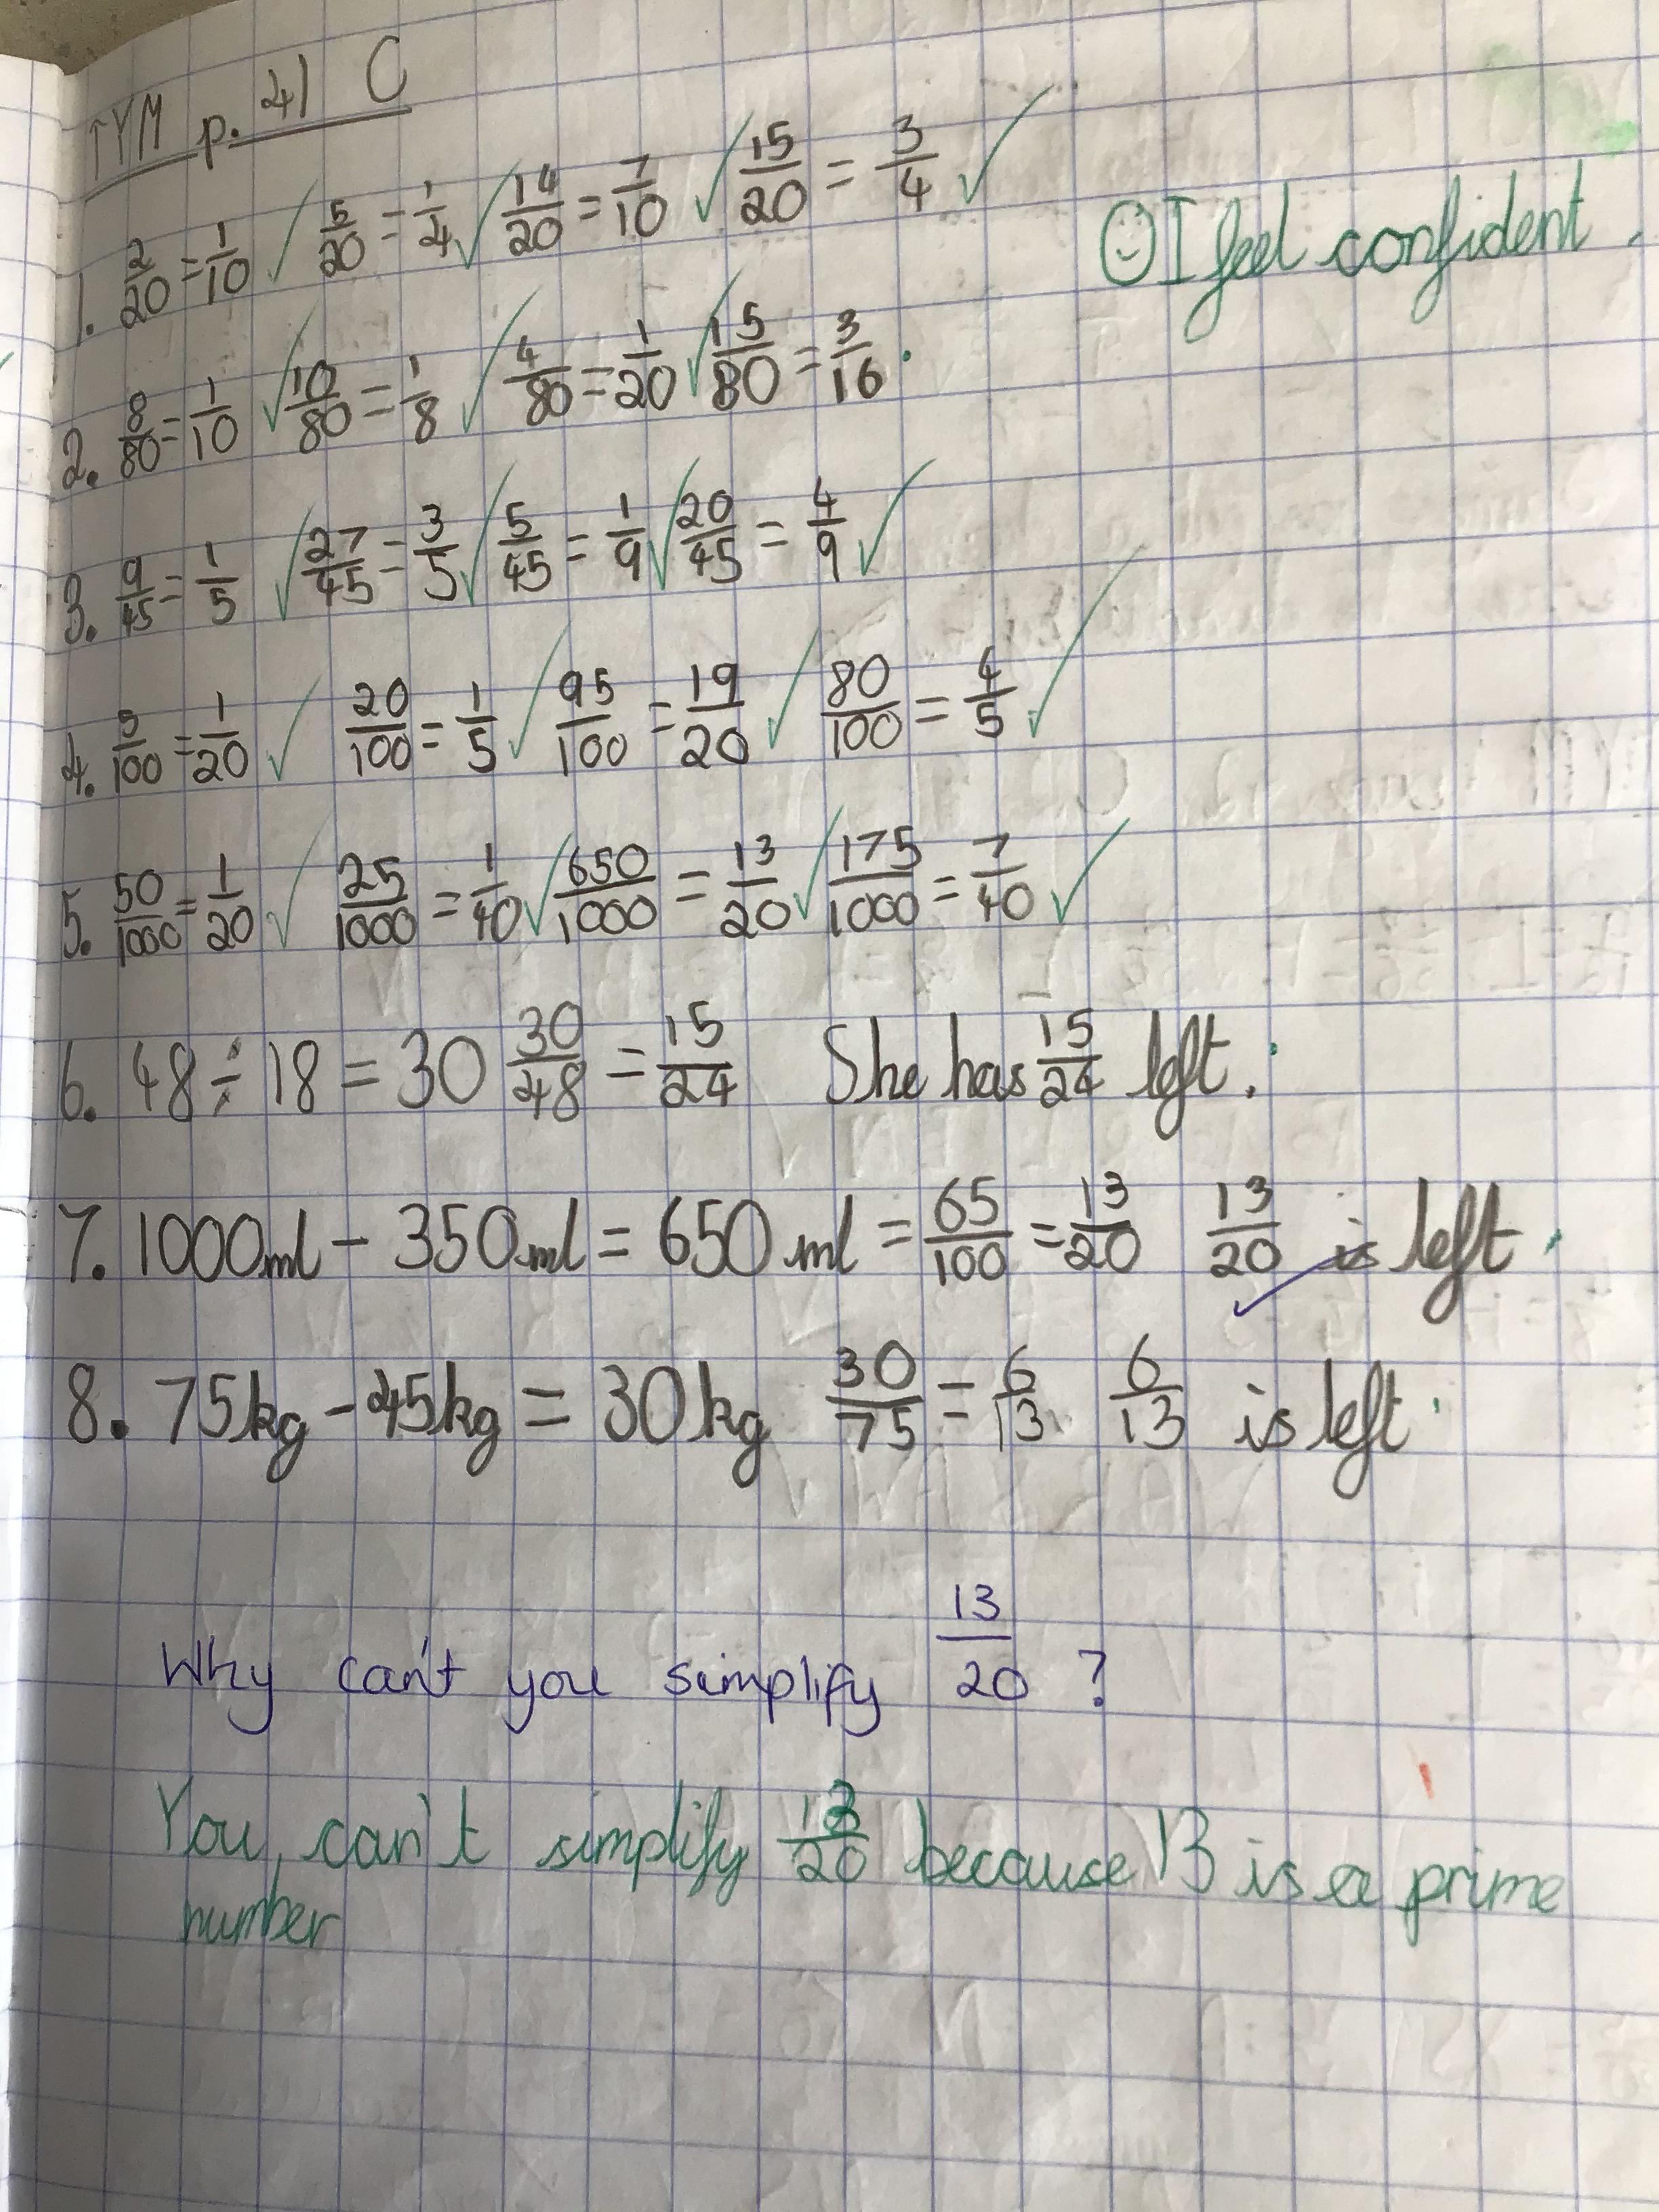 TYM p. 41 C
1. 2/20 = 1/10 ✓ 5/20 = 1/4 ✓ 14/20 = 7/10 ✓ 15/20 = 3/4 ✓
☺ I feel confident.
2. 8/80 = 1/10 ✓ 10/80 = 1/8 ✓ 4/80 = 1/20 ✓ 15/80 = 3/16 .
3. 9/45 = 1/5 ✓ 27/45 = 3/5 ✓ 5/45 = 1/9 ✓ 20/45 = 4/9 ✓
4. 5/100 = 1/20 ✓ 20/100 = 1/5 ✓ 95/100 = 19/20 ✓ 80/100 = 4/5 ✓
5. 50/1000 = 1/20 ✓ 25/1000 = 1/40 ✓ 650/1000 = 13/20 ✓ 175/1000 = 7/40 ✓
6. 48 ÷ 18 = 30 30/48 = 15/24 She has 15/24 left.
7. 1000ml - 350ml = 650ml = 65/100 = 13/20 13/20 is left. ✓
8. 75kg - 45kg = 30kg 30/75 = 6/13 6/13 is left.
Why can't you simplify 13/20 ?
You can't simplify 13/20 because 13 is a prime
number